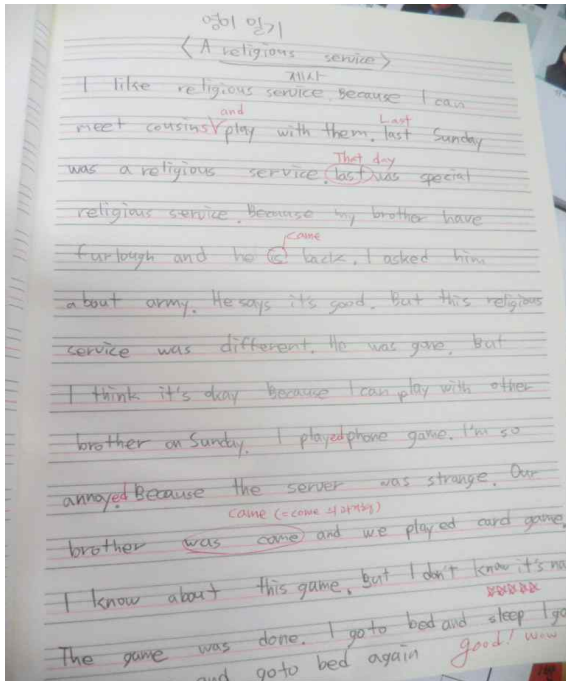 영어 일기
< A religious service >
제사
I like religious service. Because I can
and
meet cousins play with them. last Sunday
Last
was a religious service. last was special
That day
religious service. Because my brother have
came
furlough and he is back. I asked him
about army. He says it's good. But this religious
service was different. He was gone. But
I think it's okay Because I can play with other
brother on Sunday. I played phone game. I'm so
annoyed. Because the server was strange. Our
came (=come의 과거형)
brother was came and we played card game.
I know about this game. But I don't know it's na
The game was done. I go to bed and sleep I go
and go to bed again
good! wow